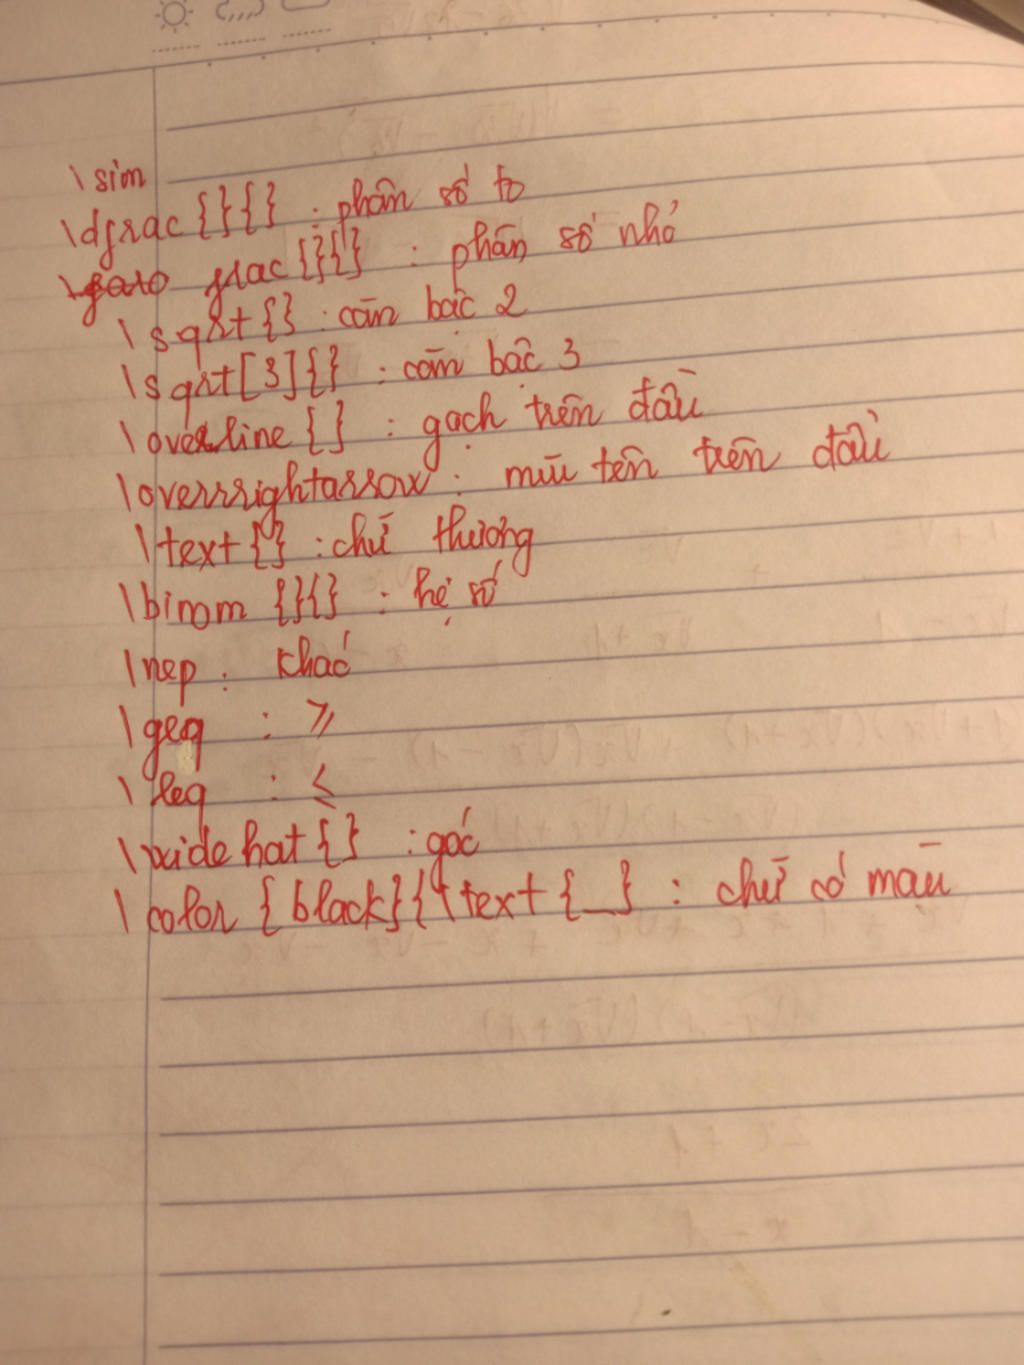 \sim
\dfrac{}{} : phân số to
frac{}{} : phân số nhỏ
\sqrt{} : căn bậc 2
\sqrt[3]{} : căn bậc 3
\overline{} : gạch trên đầu
\overrrightarrow : mũi tên trên đầu
\text{} : chữ thường
\binom {}{} : hệ số
\nep : khác
\geq : ⩾
\leq : ⩽
\widehat{} : góc
\color {black}{\text{_} : chữ có màu